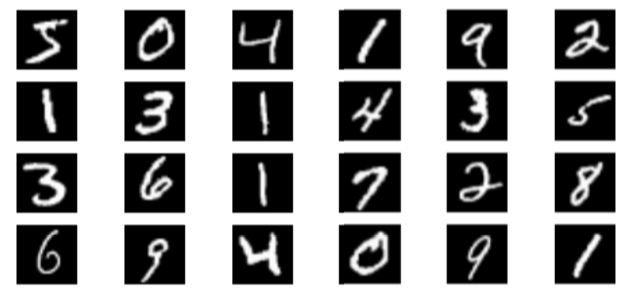 5 0 4 1 9 2
1 3 1 4 3 5
3 6 1 7 2 8
6 9 4 0 9 1